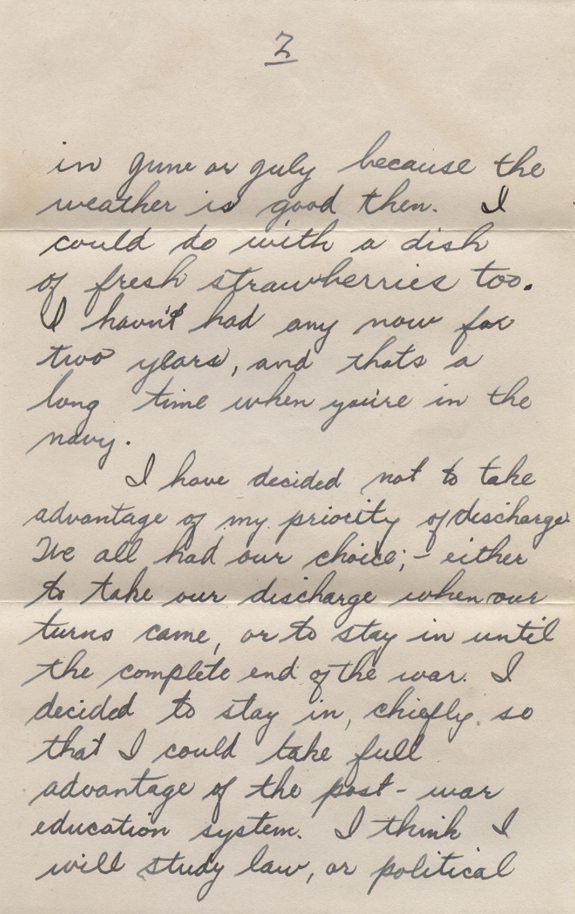 2
in June or July because the
weather is good then. I
could do with a dish
of fresh strawberries too.
I havn't had any now for
two years, and thats a
long time when you're in the
navy.
I have decided not to take
advantage of my priority of discharge
We all had our choice; - either
to take our discharge when our
turns came, or to stay in until
the complete end of the war. I
decided to stay in, chiefly so
that I could take full
advantage of the post - war
education system. I think I
will study law, or political